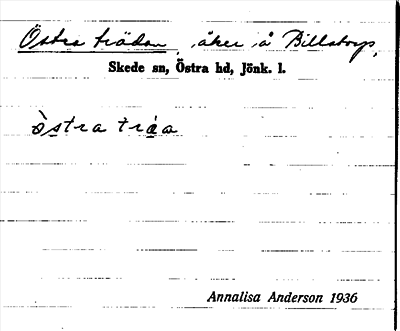 Östra trädan, åker å Billstorp,
Skede sn, Östra hd, Jönk. l.
östra tràa
Annalisa Anderson 1936